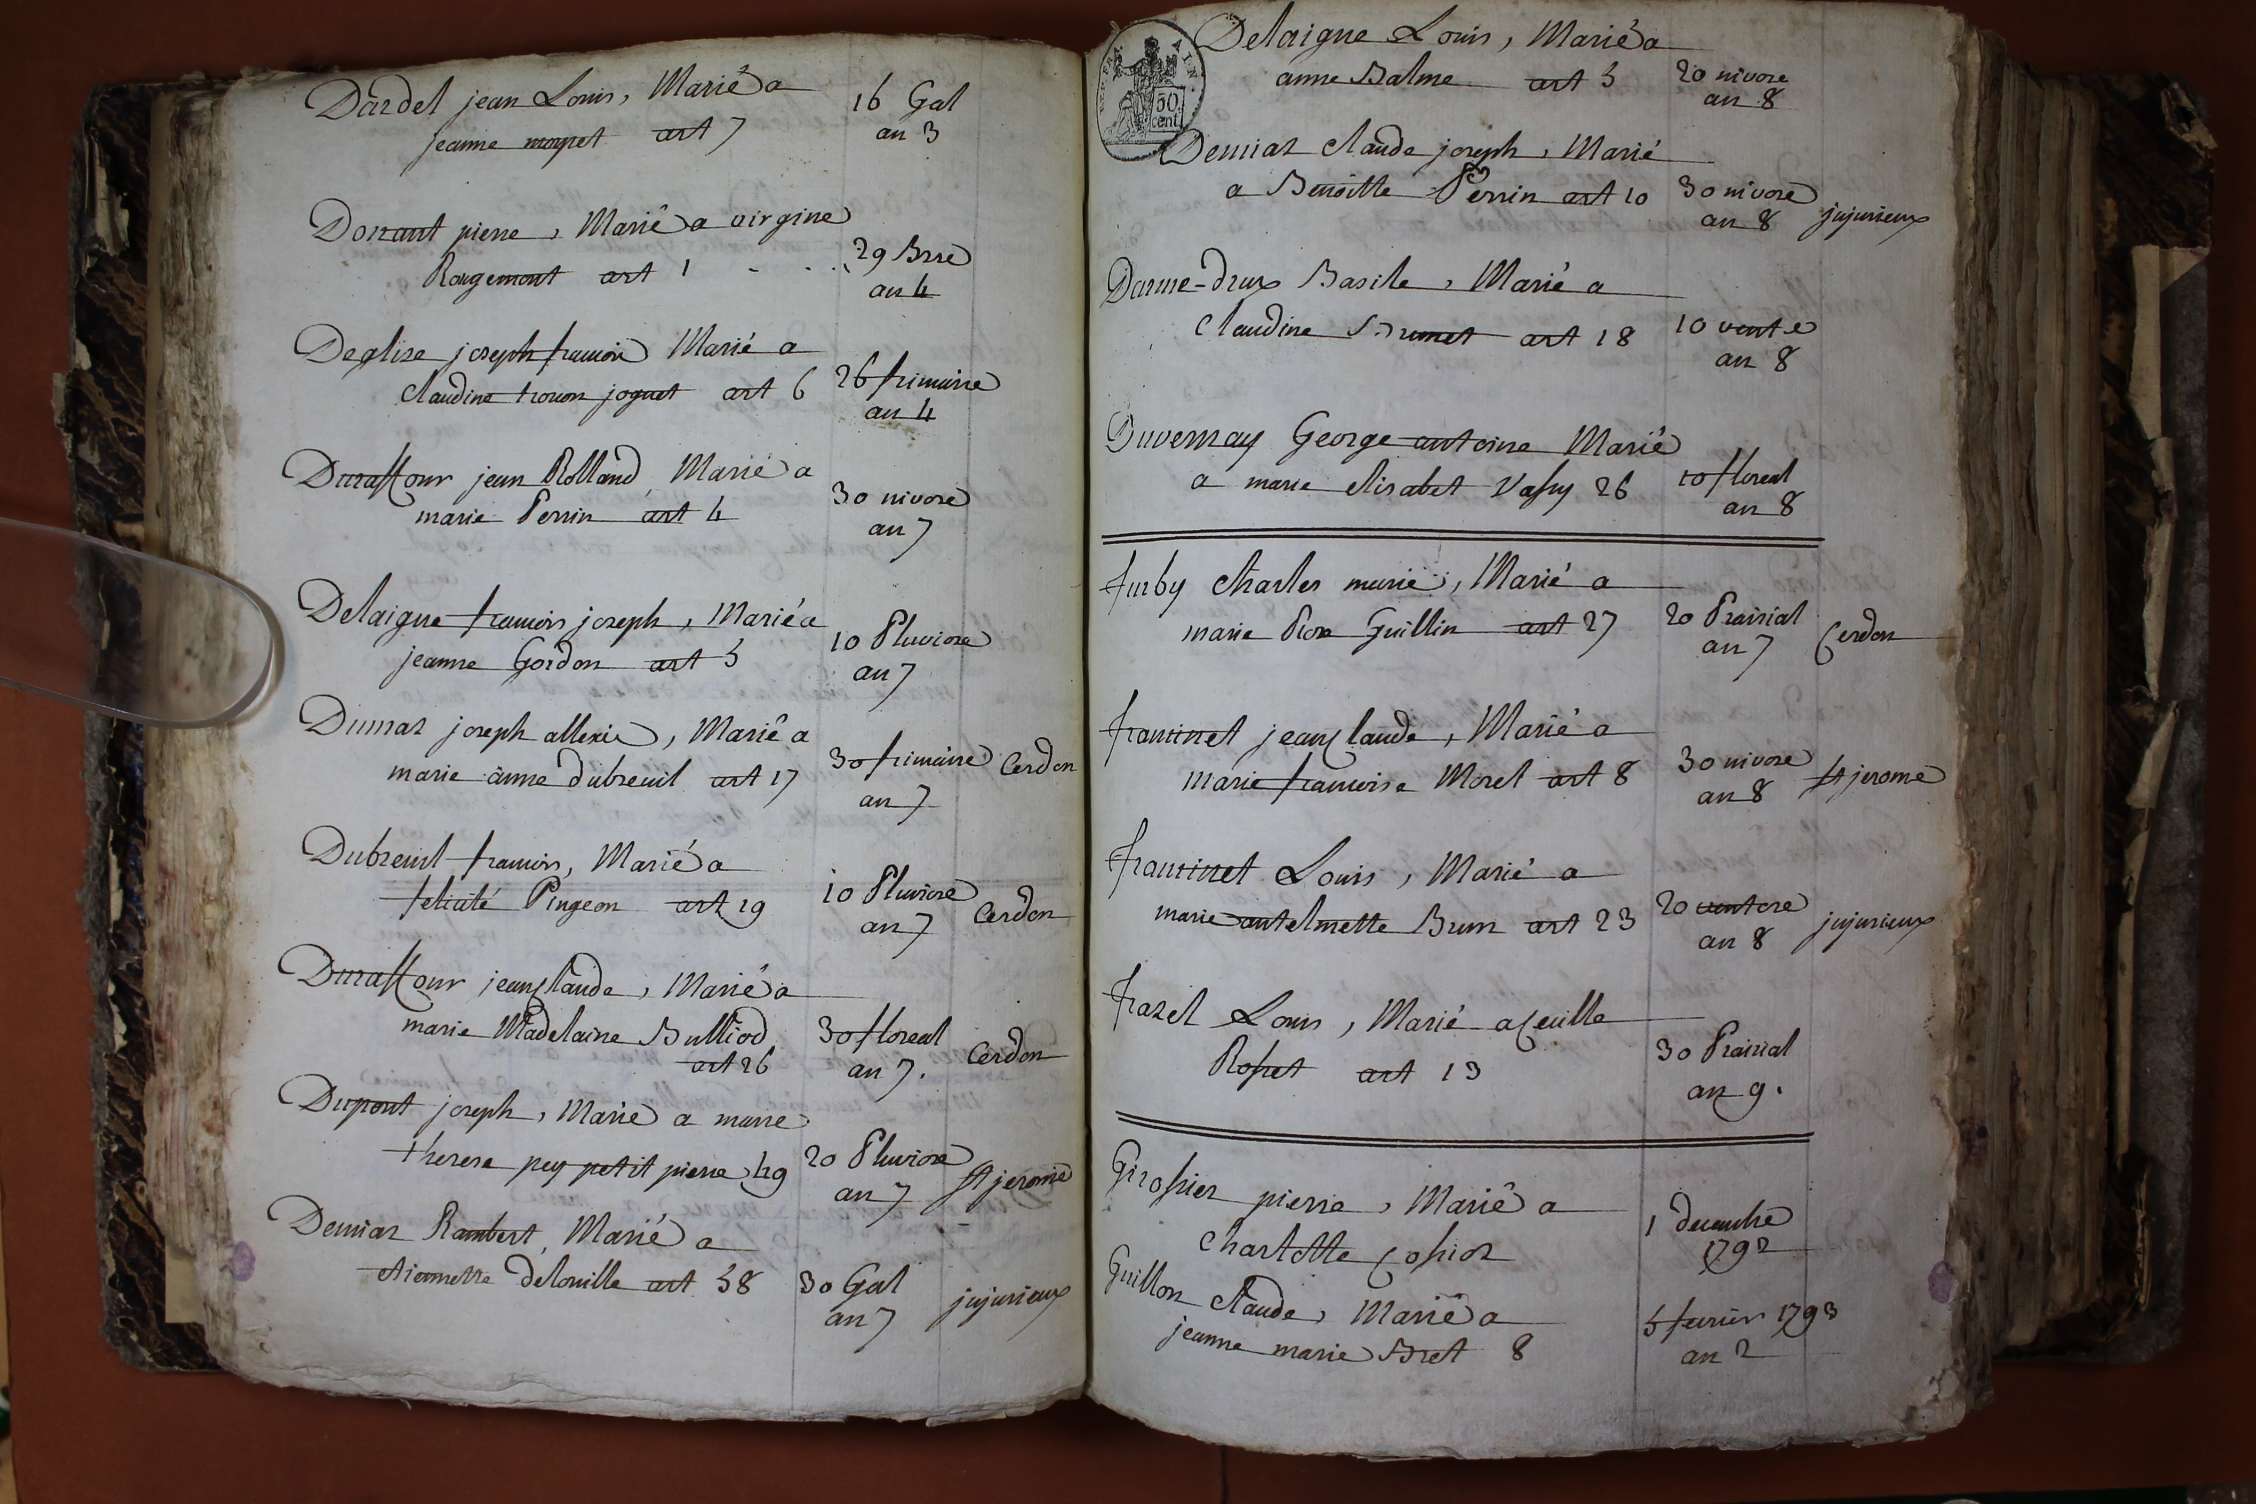 Dardel jean Louis, Marié a
jeanne mapet art 7
16 Gal
an 3
Donant pierre, Marié a virgine
Rougemont art 1
29 Bre
an 4
Deglise joseph francois Marié a
claudine trouon joguet art 6
26 frimaire
an 4
Duraffour jean Rolland Marié a
marie Perrin art 4
30 nivose
an 7
Delaigue francois joseph, Marié a
jeanne Gordon art 5
10 Pluviose
an 7
Dumas joseph allexis, Marié a
marie anne dubreuil art 17
30 frimaire
an 7
Cerdon
Dubreuil francois, Marié a
felicité Pingeon art 19
10 Pluviose
an 7
Cerdon
Duraffour jean Claude, Marié a
marie Madelaine Bulliod
art 26
30 floreal
an 7.
Cerdon
Dupont joseph, Marié a marie
therese pey petit pierre 49
20 Pluviose
an 7
St jerome
Demiaz Rambert, Marié a
etiennette delouille art 58
30 Gal
an 7
jujurieux
50
cent
Delaigue Louis, Marié a
anne Balme art 5
20 nivose
an 8
Demiaz claude joseph, Marié
a Benoitte Perrin art 10
30 nivose
an 8
jujurieux
Darme-drux Basile, Marié a
claudine Brunet art 18
10 vente
an 8
Duvernay George antoine Marié
a marie elisabet Vassy 26
10 floreal
an 8
furby charles marie, Marié a
marie Rose Guillin art 27
20 Prairial
an 7
Cerdon
franinet jean Claude, Marié a
marie francoise Morel art 8
30 nivose
an 8
St jerome
franinet Louis, Marié a
marie antelmette Brun art 23
20 ventose
an 8
jujurieux
frazel Louis, Marié a Cecille
Rosset art 13
30 Prairial
an 9.
Grossier pierre, Marié a
Charlotte Cossioz
1 decembre
1792
Guillon claude, Marié a
jeanne marie Bret 8
5 fevrier 1793
an 2